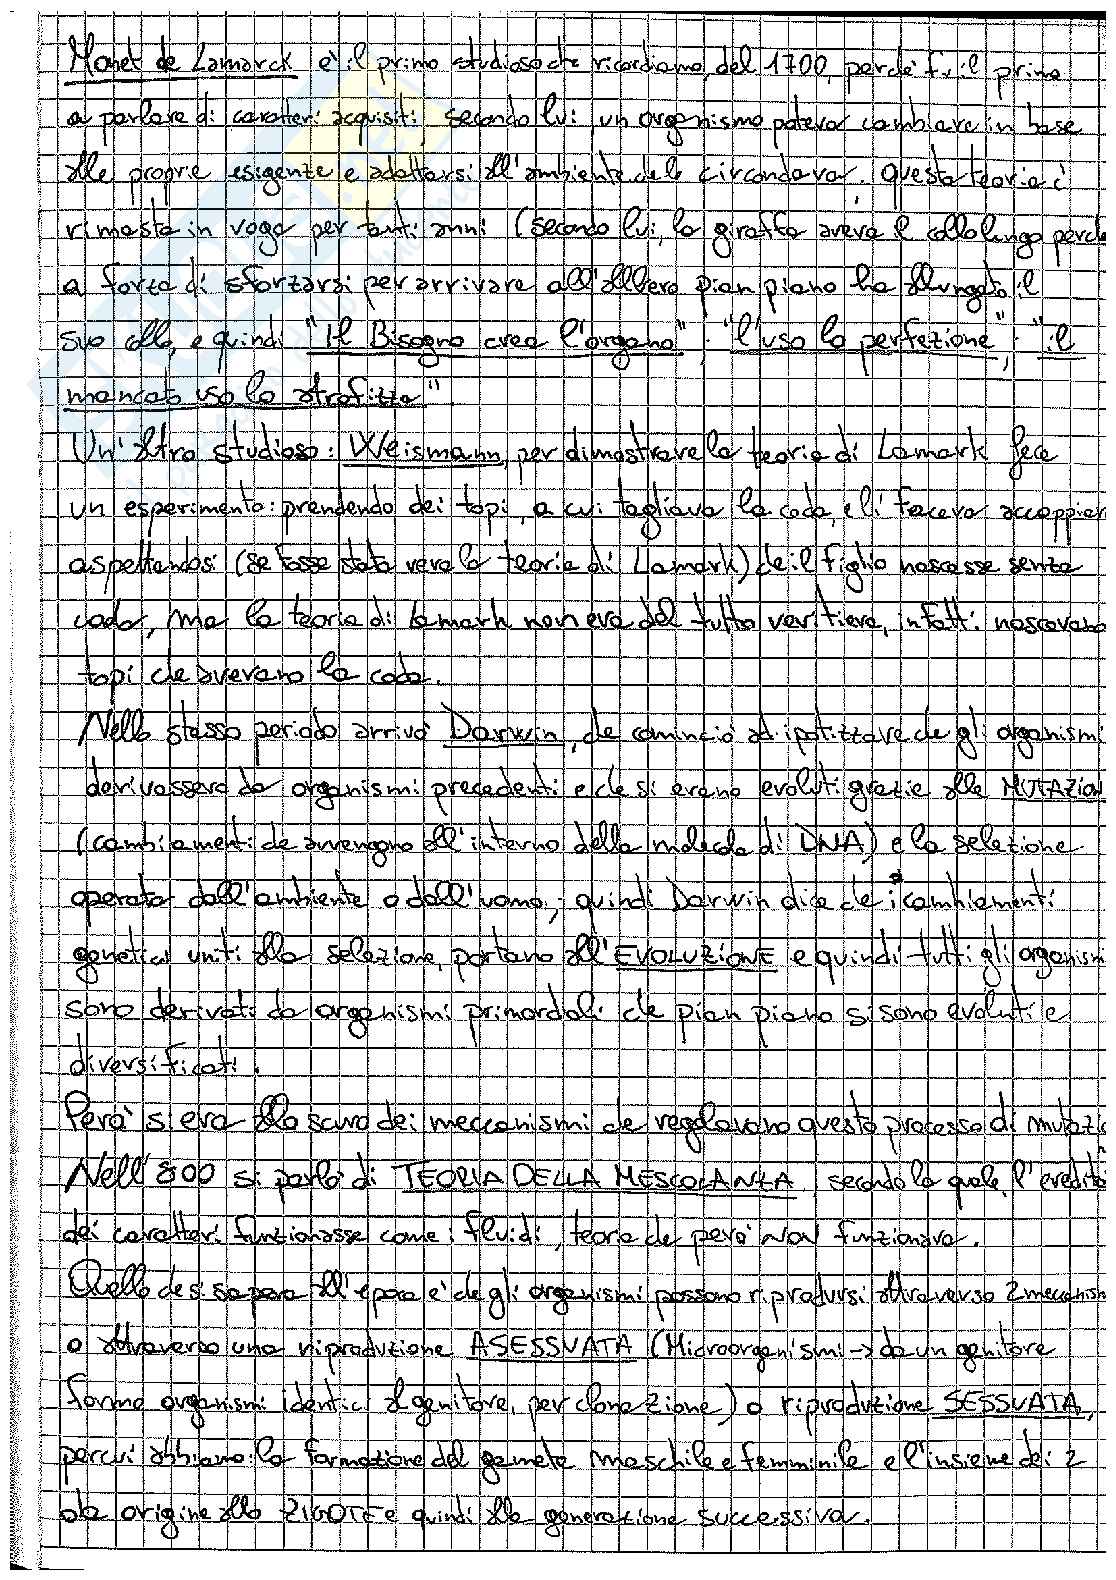 Monet de Lamarck è il primo studioso che ricordiamo del 1700, perchè fu il primo
a parlare di caratteri acquisiti, secondo lui, un organismo poteva cambiare in base
alle proprie esigenze e adattarsi all'ambiente che lo circondava. questa teoria è
rimasta in voga per tanti anni (secondo lui, la giraffa aveva il collo lungo perchè
a forza di sforzarsi per arrivare all'albero pian piano ha allungato il
suo collo, e quindi "Il Bisogno crea l'organo"; "l'uso lo perfeziona"; "il
mancato uso lo atrofizza"
Un'altro studioso: Weismann, per dimostrare la teoria di Lamark fece
un esperimento: prendendo dei topi, a cui tagliava la coda, e li faceva accoppiar
aspettandosi (se fosse stata vera la teoria di Lamark) che il figlio nascesse senza
coda, ma la teoria di Lamark non era del tutto veritiera, infatti nascevano
topi che avevano la coda.
Nello stesso periodo arrivò Darwin, che cominciò ad ipotizzare che gli organismi
derivassero da organismi precedenti e che si erano evoluti grazie alle MUTAZION
(cambiamenti che avvengono all'interno della molecola di DNA) e la selezione
operata dall'ambiente o dall'uomo; quindi Darwin dice che i cambiamenti
genetici uniti alla selezione, portano all'EVOLUZIONE e quindi tutti gli organismi
sono derivati da organismi primordiali che pian piano si sono evoluti e
diversificati.
Però si era allo scuro dei meccanismi che regolavano questo processo di mutazio
Nell'800 si parlò di TEORIA DELLA MESCOLANZA, secondo la quale, l'eredità
dei caratteri funzionasse come i fluidi, teoria che però NON funzionava.
Quello che si sapeva all'epoca è che gli organismi possono riprodursi attraverso 2 meccanism
o attraverso una riproduzione ASESSUATA (Microorganismi → da un genitore
formo organismi identici al genitore, per clonazione) o riproduzione SESSUATA,
per cui abbiamo la formazione del gamete maschile e femminile e l'insieme dei 2
da origine allo ZIGOTE e quindi alla generazione successiva.